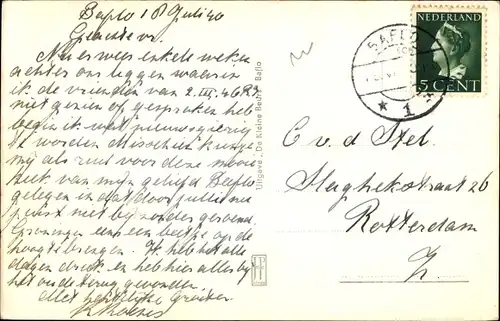 Baflo 18 Juli 40
Geachte vr.
Nu er weer enkele weken
achter ons liggen waarin
ik de vrienden van
niet gezien of gesproken heb
begin ik wat nieuwsgierig
te worden Misschien kunje
mij als ruil voor deze mooie
van mijn geliefd Baflo
gelegen in dat door jullie nu
juist niet bijzonder
Groningen eens een beetje op de
hoogte brengen. Ik heb het alle
dagen druk en heb hier alles bij
het oude terug gevonden.
Met hartelijke Groeten
Uitgave „De Kleine Baflo
BAFLO
1
NEDERLAND
5 CENT
C. v. d. Stel.
Slaghekstraat 26
Rotterdam
Z.